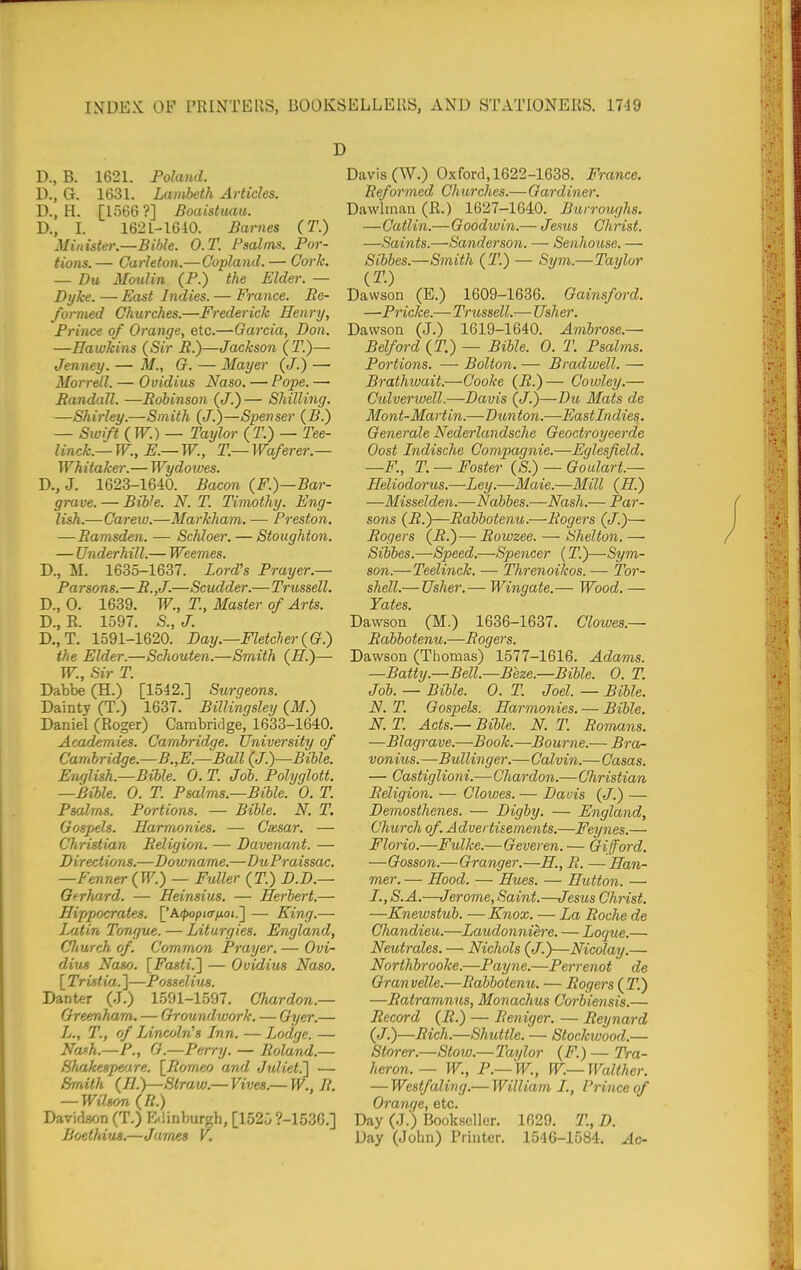 INDEX OF PRINTERS, BOOKSELLERS, AND STATIONERS. 1749
D
D., B. 1621. Poland.
D., G. 1631. Lambeth Articles.
D., H. [1566?] Boaistuau.
D., I. 1621-1640. Barnes (T.)
Minister.—Bible. O.T. Psalms. Por-
tions.— Carleton.—Copland. — Cork.
— Du Moulin (P.) the Elder. —
Dyke. — East Indies. — France. Re-
formed Churches.—Frederick Henry,
Prince of Orange, etc.—Garcia, Don.
—Hawkins (Sir R.)—Jackson (T.)—
Jenney. — M., G. — Mayer (J.) —
Morrell. — Ovidius Naso. — Pope. —
Randall. —Robinson (J.)— Shilling.
—Shirley.—Smith (J.)—Spenser (B.)
— Swift (W.) — Taylor (T.) — Tee-
linck.— W., E.— W., T.— Waferer.—
Whitaker.— Wydowes.
D., J. 1623-1640. Bacon (F.)—Bar-
grave. — Bible. N. T. Timothy. Eng-
lish.—Carew.—Markham. — Preston.
— Ramsden. — Schloer. — Stoughton.
— Underhill.— Weemes.
D., M. 1635-1637. Lord's Prayer.—
Parsons.—R.,J.—Scudder.—Trussell.
D., O. 1639. W., T., Master of Arts.
D., R. 1597. S., J.
D., T. 1591-1620. Day.—Fletcher (G.)
the Elder.—Schouten.—Smith (H.)—
W., Sir T.
Dabbe (H.) [1542.] Surgeons.
Dainty (T.) 1637. Billingsley (M.)
Daniel (Roger) Cambridge, 1633-1640.
Academies. Cambridge. University of
Cambridge.—B.,E.—Ball (J.)—Bible.
English.—Bible. O. T. Job. Polyglott.
—Bible. O. T. Psalms.—Bible. O. T.
Psalms. Portions. — Bible. N. T.
Gospels. Harmonies. — Cæsar. —
Christian Religion. — Davenant. —
Directions.—Downame.—DuPraissac.
—Fenner (W.) — Fuller (T.) D.D.—
Gerhard. — Heinsius. — Herbert.—
Hippocrates. [Ἀφορισμοι.] — King.—
Latin Tongue. — Liturgies. England,
Church of. Common Prayer. — Ovi-
dius Naso. [Fasti.] — Ovidius Naso.
[Tristia.]—Posselius.
Danter (J.) 1591-1597. Chardon.—
Greenham. — Groundwork. — Gyer.—
L., T., of Lincoln's Inn. — Lodge. —
Nash.—P., G.—Perry. — Roland.—
Shakespeare. [Romeo and Juliet.] —
Smith (H.)—Straw.— Vives.— W., R.
— Wilson (R.)
Davidson (T.) Edinburgh, [1525?-1536.]
Boethius.—James V.
Davis (W.) Oxford, 1622-1638. France.
Reformed Churches.—Gardiner.
Dawlman (R.) 1627-1640. Burroughs.
—Catlin.—Goodwin.— Jesus Christ.
—Saints.—Sanderson. — Senhouse. —
Sibbes.—Smith (T.) — Sym.—Taylor
(T.)
Dawson (E.) 1609-1636. Gainsford.
—Pricke.—Trussell.— Usher.
Dawson (J.) 1619-1640. Ambrose.—
Belford (T.) — Bible. O. T. Psalms.
Portions. — Bolton. — Bradwell. —
Brathwait.—Cooke (R.) — Cowley.—
Culverwell.—Davis (J.)—Du Mats de
Mont-Martin.—Dunton.—EastIndies.
Generale Nederlandsche Geoctroyeerde
Oost Indische Compagnie.—Eglesfield.
—F., T. — Foster (S.) — Goulart.—
Heliodorus.—Ley.—Maie.—Mill (H.)
—Misselden.—Nabbes.—Nash.— Par-
sons (R.)—Rabbotenu.—Rogers (J.)—
Rogers (R.)— Rowzee. — Shelton. —
Sibbes.—Speed.—Spencer (T.)—Sym-
son.—Teelinck. — Threnoikos. — Tor-
shell.— Usher.— Wingate.— Wood. —
Yates.
Dawson (M.) 1636-1637. Clowes.—
Rabbotenu.—Rogers.
Dawson (Thomas) 1577-1616. Adams.
—Batty.—Bell.—Bèze.—Bible. O. T.
Job. — Bible. O. T. Joel. — Bible.
N. T. Gospels. Harmonies. — Bible.
N. T. Acts.— Bible. N. T. Romans.
—Blagrave.—Book.—Bourne.— Bra-
vonius.—Bullinger.— Calvin.—Casas.
— Castiglioni.—Chardon.—Christian
Religion. — Clowes. — Davis (J.) —
Demosthenes. — Digby. — England,
Church of. Advertisements.—Feynes.—
Florio.—Fulke.—Geveren. — Gifford.
—Gosson.—Granger.—H., R. — Han-
mer. — Hood. — Hues. — Hutton. —
I., S.A.—Jerome, Saint.—Jesus Christ.
—Knewstub. — Knox. — La Roche de
Chandieu.—Laudonnière. — Loque.—
Neutrales. — Nichols (J.)—Nicolay.—
Northbrooke.—Payne.—Perrenot de
Granvelle.—Rabbotenu. — Rogers (T.)
—Ratramnus, Monachus Corbiensis.—
Record (R.) — Reniger. — Reynard
(J.)—Rich.—Shuttle. — Stockwood.—
Storer.—Stow.—Taylor (F.) — Tra-
heron. — W., P.— W., W.— Walther.
— Westfaling.— William I., Prince of
Orange, etc.
Day (J.) Bookseller. 1629. T., D.
Day (John) Printer. 1546-1584. Ac-